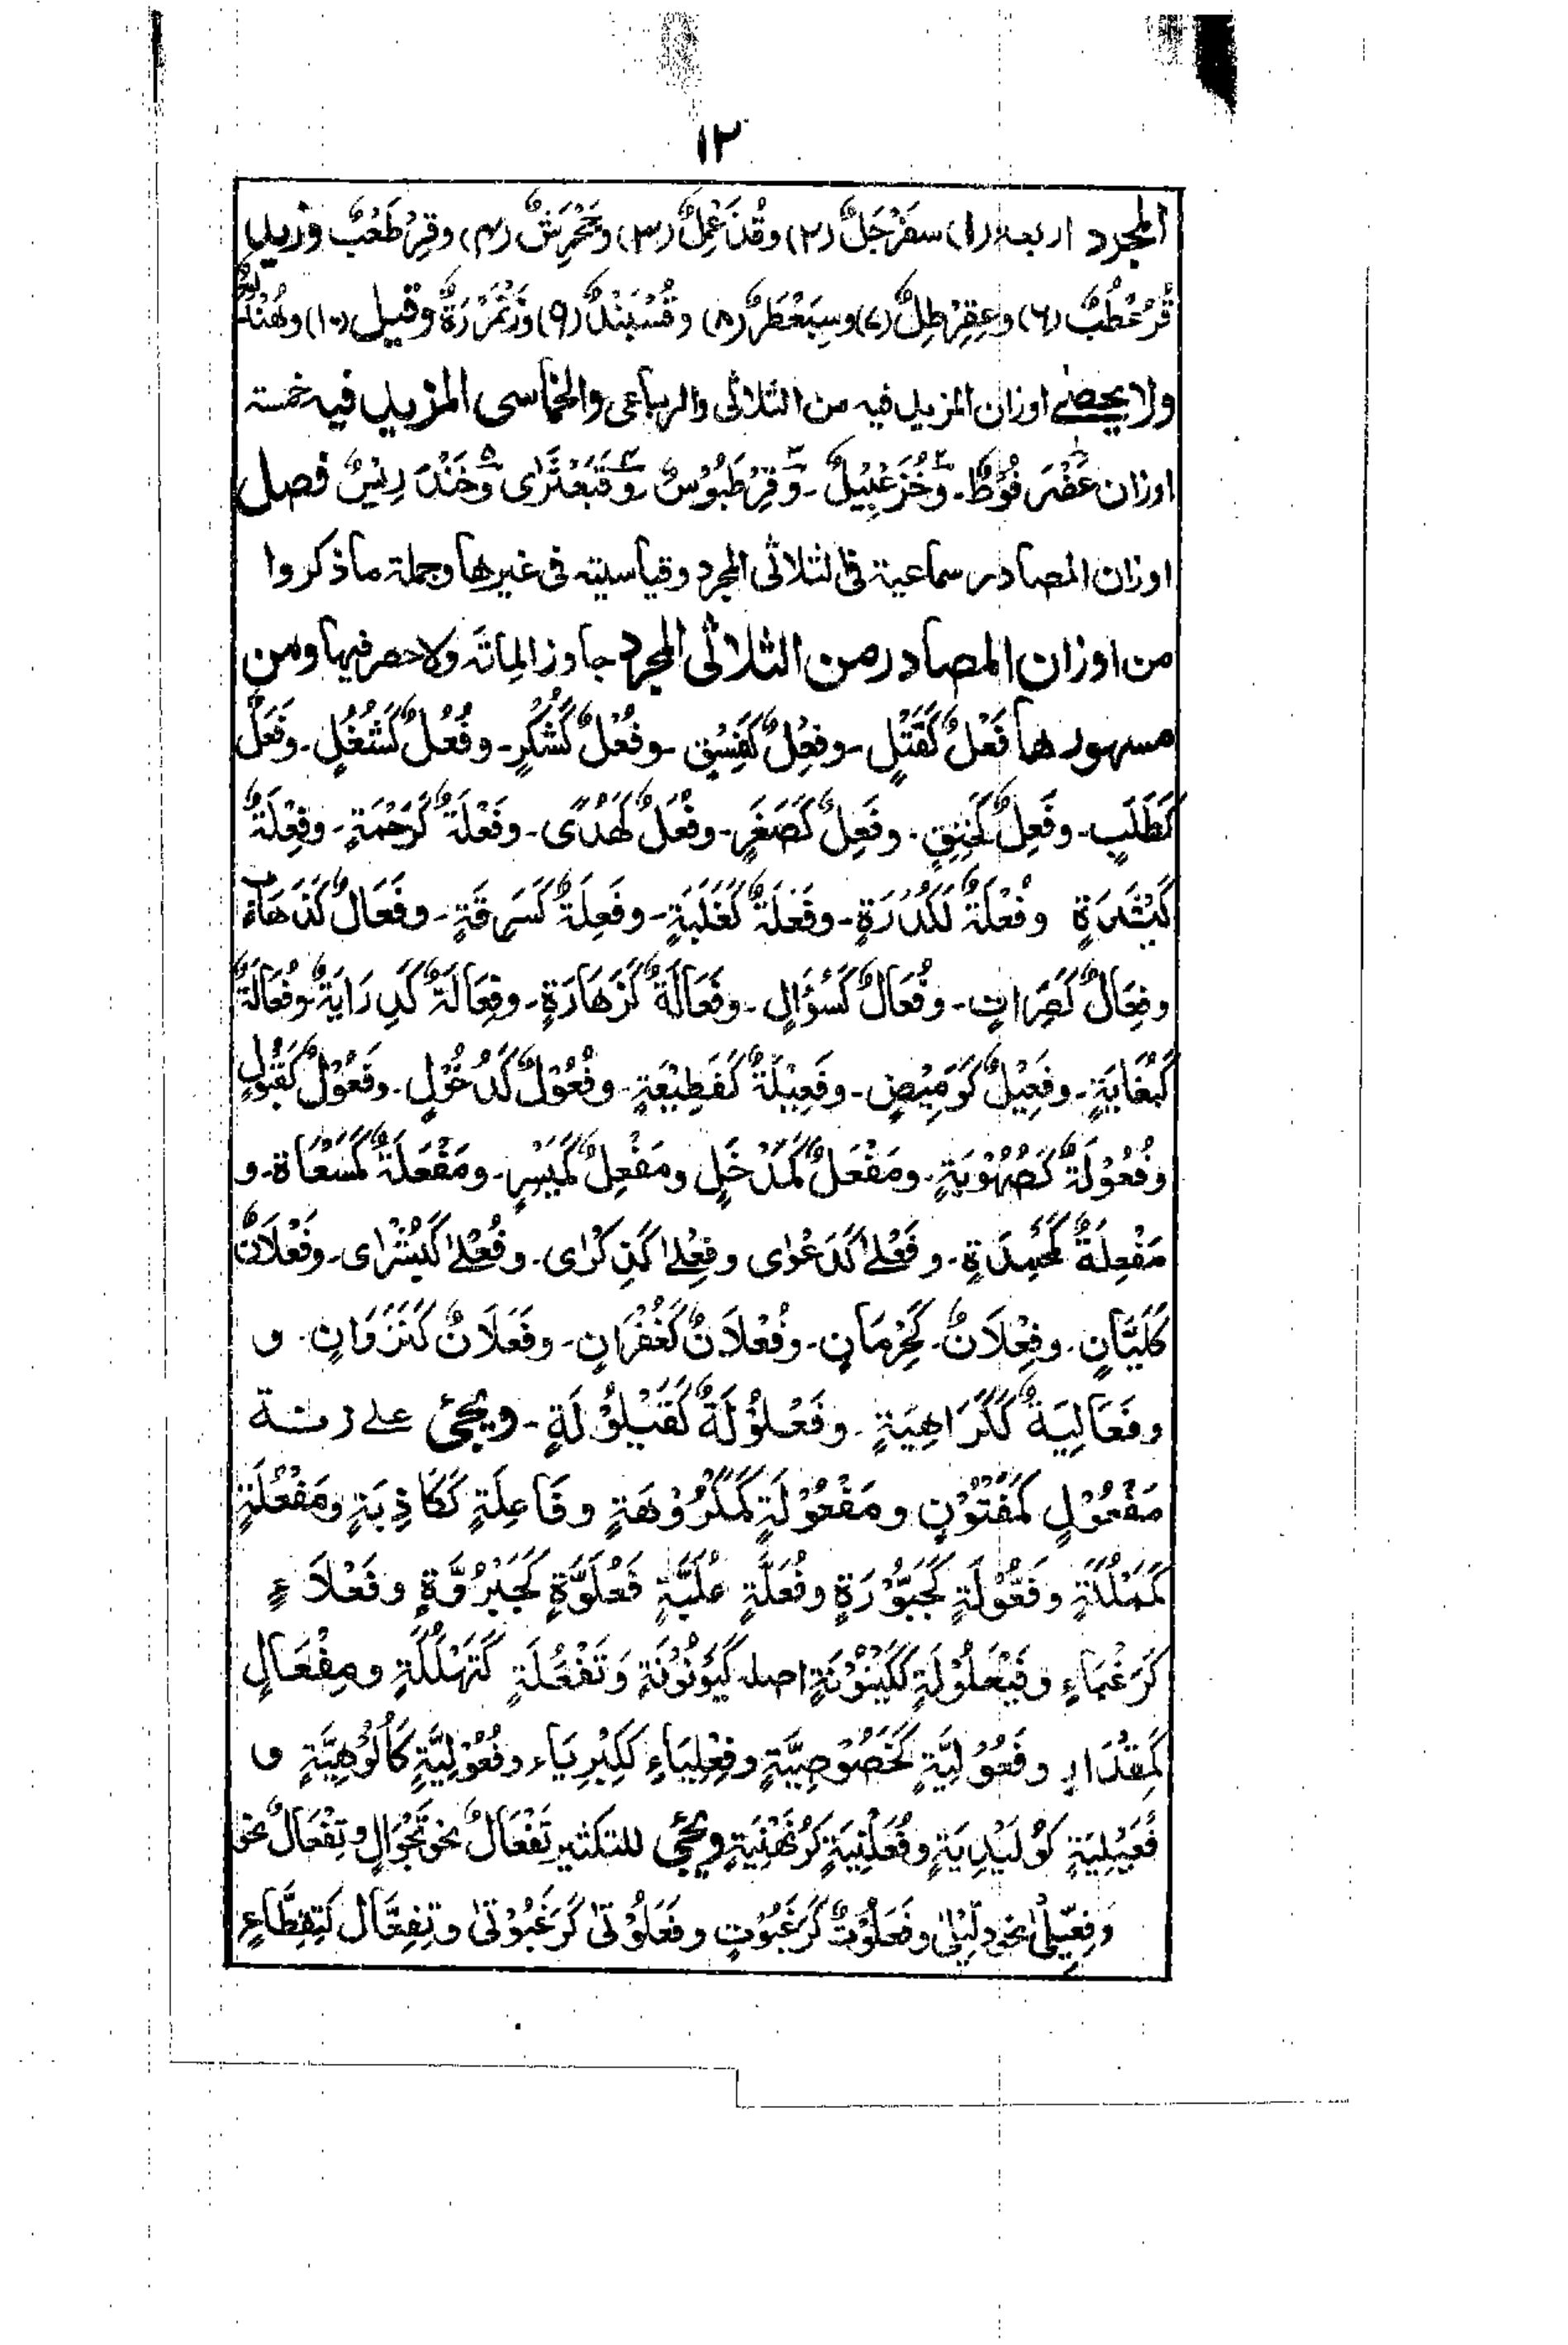 ١٢
المجرد اربعه (١) سَفَرْجَلٌ (٢) وقُذَعْمِلٌ (٣) وجَحْمَرِشٌ (٤) وقِرْطَعْبٌ وزيد
قُرْعُطُبٌ (٦) وعِقِرْطِلٌ (٧) وسِبَعْطَرٌ (٨) وقُسْبَنْدٌ (٩) وزَنْمَرْدَةٌ وقيل (١٠) وهُنْدَلِعٌ
ولا يحصٰے اوزان المزيد فيه من الثلاثى والرباعى والخماسى المزيد فيه خمسة
اوزان عَضْرَفُوْطٌ - وخُزَعْبِيْلٌ - وقِرْطَبُوْسٌ - وقَبَعْثَرٰى وخَنْدَرِيْسٌ فصل
اوزان المصادر سماعية فى الثلاثى المجرد وقياسيته فى غيرها وجملة ما ذكروا
من اوزان المصادر من الثلاثى المجرد جاوز المائة ولا حصر فيها ومن
مسهورها فَعْلٌ كَقَتْلٍ - وفِعْلٌ كَفِسْقٍ - وفُعْلٌ كَشُكْرٍ - وفُعُلٌ كَشُغُلٍ - وفَعَلٌ
كَطَلَبٍ - وفَعِلٌ كَخَنِقٍ - وفِعَلٌ كَصِغَرٍ - وفُعَلٌ كَهُدًى - وفَعْلَةٌ كَرَحْمَةٍ - وفِعْلَةٌ
كَنِشْدَةٍ وفُعْلَةٌ كَكُدْرَةٍ - وفَعَلَةٌ كَغَلَبَةٍ - وفَعِلَةٌ كَسَرِقَةٍ - وفَعَالٌ كَذَهَابٍ
وفِعَالٌ كَصِرَافٍ - وفُعَالٌ كَسُؤَالٍ - وفَعَالَةٌ كَزَهَادَةٍ - وفِعَالَةٌ كَدِرَايَةٍ وفُعَالَةٌ
كَبُغَايَةٍ - وفَعِيْلٌ كَوَمِيْضٍ - وفَعِيْلَةٌ كَقَطِيْعَةٍ - وفُعُوْلٌ كَدُخُوْلٍ - وفَعُوْلٌ كَقَبُوْلٍ
وفُعُوْلَةٌ كَصُهُوْبَةٍ - ومَفْعَلٌ كَمَدْخَلٍ ومَفْعِلٌ كَمَيْسِرٍ - ومَفْعَلَةٌ كَمَسْعَاة - و
مَفْعِلَةٌ كَمَحْمِدَةٍ - وفَعْلٰے كَدَعْوٰى وفِعْلٰے كَذِكْرٰى - وفُعْلٰے كَبُشْرٰى - وفَعْلَانٌ
كَلَيَّانٍ - وفِعْلَانٌ - كَحِرْمَانٍ - وفُعْلَانٌ كَغُفْرَانٍ - وفَعَلَانٌ كَنَزَوَانٍ - و
وفَعَالِيَةٌ كَكَرَاهِيَةٍ - وفَعْلُوْلَةٌ كَقَيْلُوْلَةٍ - ويجئ علے زنة
مَفْعُوْلٍ كَمَفْتُوْنٍ ومَفْعُوْلَةٍ كَمَكْرُوْهَةٍ وفَاعِلَةٍ كَكَاذِبَةٍ ومَفْعُلَةٍ
كَمَمْلُكَةٍ وفَعُّوْلَةٍ كَجَبُّوْرَةٍ وفُعُلَّةٍ غُلُبَّةٍ فَعْلُوَّةٍ كَجَبْرُوَّةٍ وفَعْلَاءٍ
كَرَغْبَاءٍ وفَيْعَلُوْلَةٍ كَكَيْنُوْنَةٍ اصله كَيْوَنُوْنَةٍ وَتَفْعُلَةٍ كَتَهْلُكَةٍ ومِفْعَالٍ
كَمِقْدَارٍ وفَعُوْلِيَّةٍ كَخَصُوْصِيَّةٍ وفِعْلِيَاءٍ كَكِبْرِيَاء وفُعُوْلِيَّةٍ كَاُلُوْهِيَّةٍ و
فُعَيْلِيَةٍ كَوُلَيْدِيَةٍ وفُعَلْنِيَةٍ كَرُفَهْنِيَةٍ ويجئ للتكثير تَفْعَالٌ نحو تَجْوَالٍ وتِفْعَالٌ نحو
وَفِعِّيْلٰى نحو دِلِّيْلٰى وفَعَلُوْتٌ كَرَغَبُوْتٍ وفَعَلُوْتٰى كَرَغَبُوْتٰى وتِفِعَّال كَتِقِطَّاعٍ